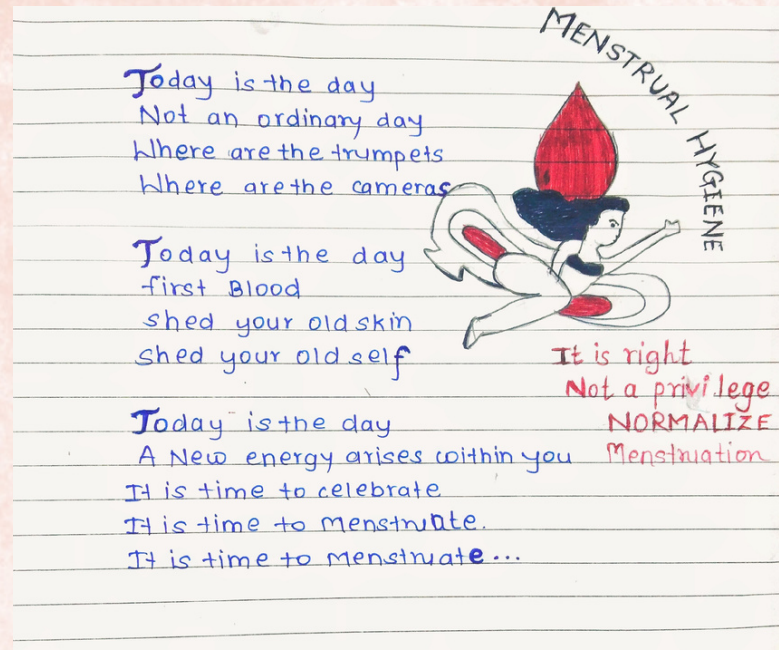 MENSTRUAL HYGIENE
Today is the day
Not an ordinary day
Where are the trumpets
Where are the cameras
Today is the day
first Blood
shed your old skin
shed your old self
Today is the day
A New energy arises within you
It is time to celebrate
It is time to menstruate.
It is time to menstruate...
It is right
Not a privilege
NORMALIZE
Menstruation